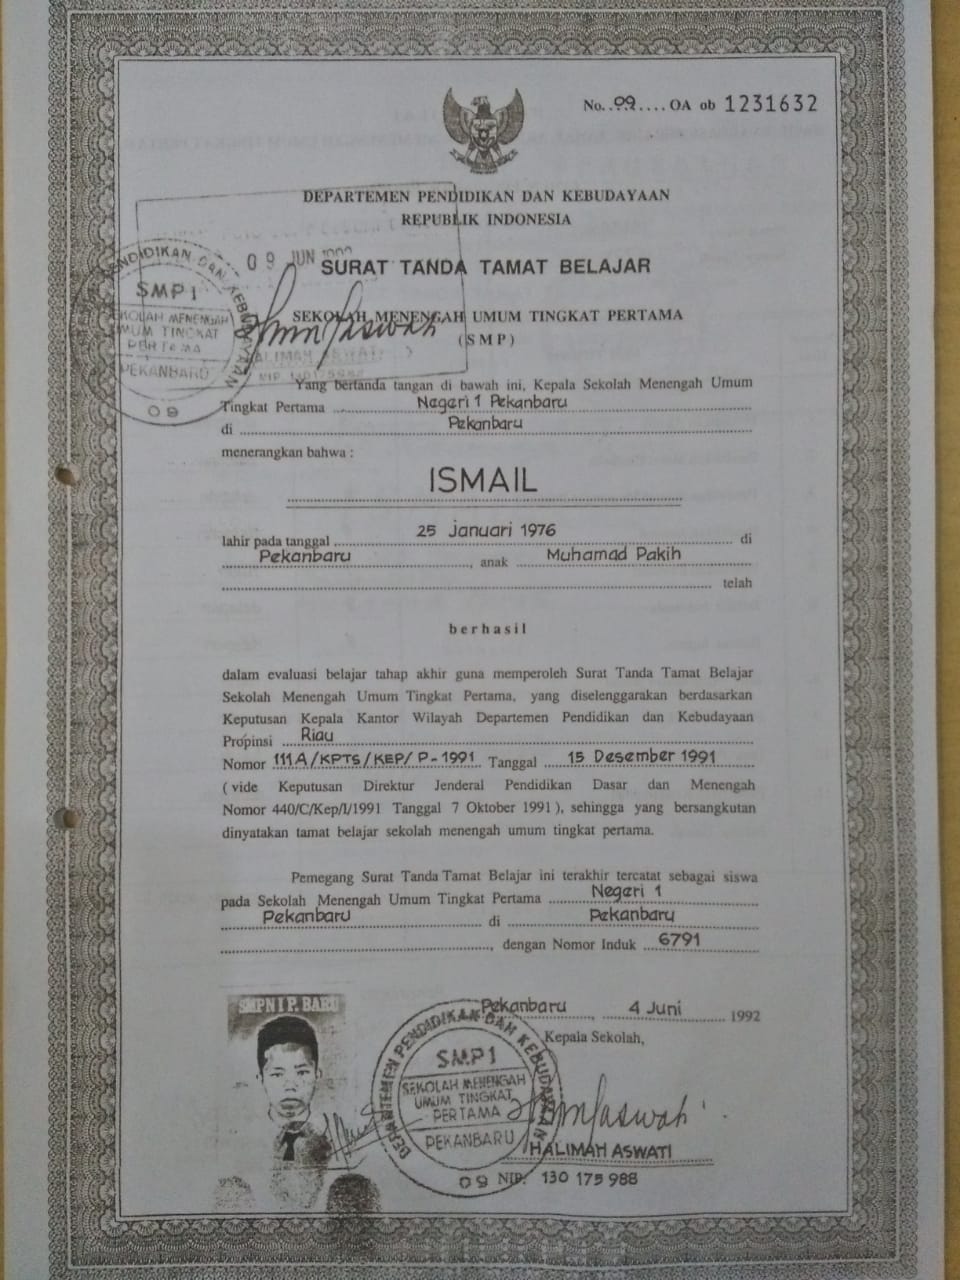 No. .09.... OA ob 1231632
DEPARTEMEN PENDIDIKAN DAN KEBUDAYAAN
REPUBLIK INDONESIA
09 JUN
SURAT TANDA TAMAT BELAJAR
SEKOLAH MENENGAH UMUM TINGKAT PERTAMA
(SMP)
PENDIDIKAN DAN KEBUDAYAAN
SMP 1
SEKOLAH MENENGAH
UMUM TINGKAT
PERTAMA
PEKANBARU
09
Yang bertanda tangan di bawah ini, Kepala Sekolah Menengah Umum
Tingkat Pertama Negeri 1 Pekanbaru
di Pekanbaru
menerangkan bahwa :
ISMAIL
lahir pada tanggal 25 Januari 1976 di
Pekanbaru, anak Muhamad Pakih
telah
berhasil
dalam evaluasi belajar tahap akhir guna memperoleh Surat Tanda Tamat Belajar
Sekolah Menengah Umum Tingkat Pertama, yang diselenggarakan berdasarkan
Keputusan Kepala Kantor Wilayah Departemen Pendidikan dan Kebudayaan
Propinsi Riau
Nomor 111A/KPTS/KEP/P-1991 Tanggal 15 Desember 1991
(vide Keputusan Direktur Jenderal Pendidikan Dasar dan Menengah
Nomor 440/C/Kep/I/1991 Tanggal 7 Oktober 1991), sehingga yang bersangkutan
dinyatakan tamat belajar sekolah menengah umum tingkat pertama.
Pemegang Surat Tanda Tamat Belajar ini terakhir tercatat sebagai siswa
pada Sekolah Menengah Umum Tingkat Pertama Negeri 1
Pekanbaru di Pekanbaru
, dengan Nomor Induk 6791
Pekanbaru, 4 Juni 1992
Kepala Sekolah,
SMPN I P. BARU
DEPARTEMEN PENDIDIKAN DAN KEBUDAYAAN
SMP 1
SEKOLAH MENENGAH
UMUM TINGKAT
PERTAMA
PEKANBARU
09
HALIMAH ASWATI
NIP. 130 175 988